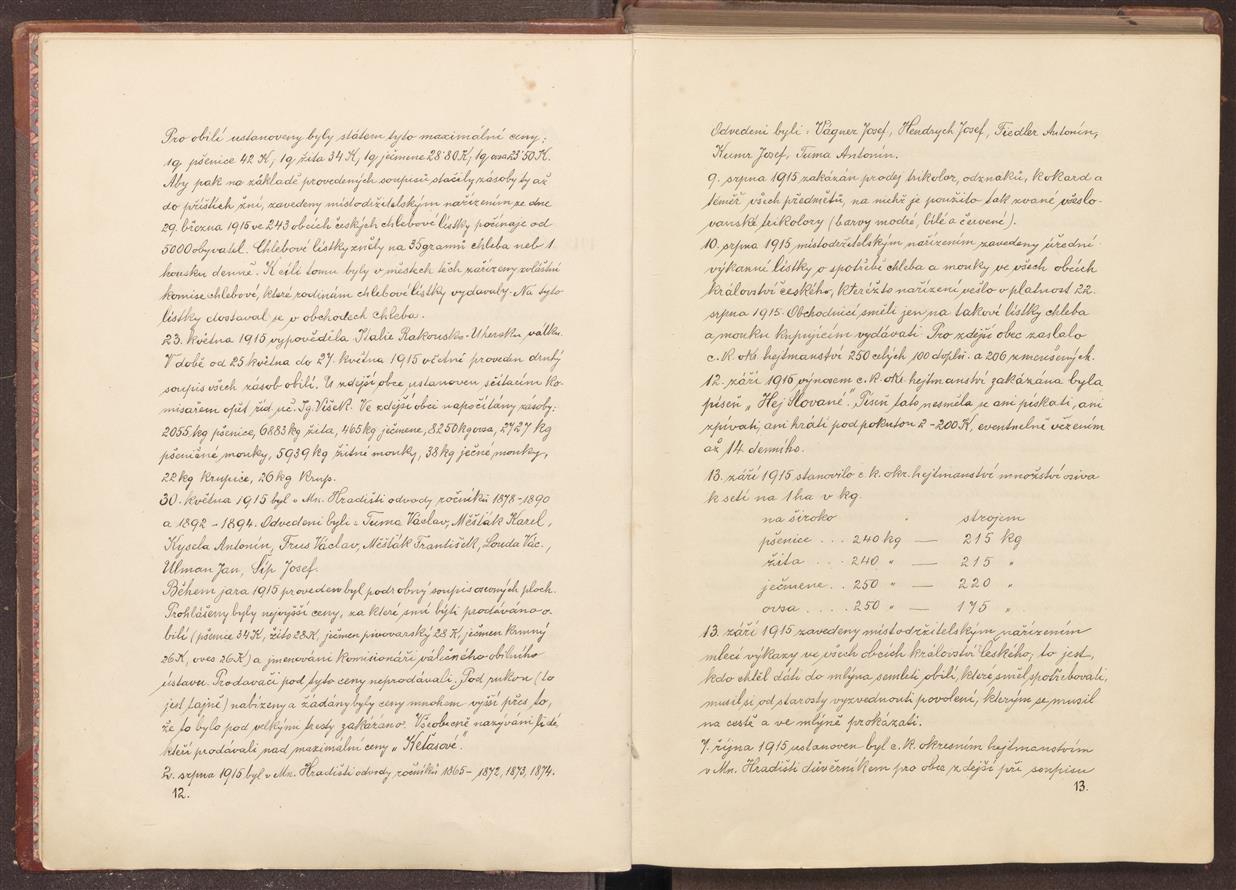 Pro obilí ustanoveny byly státem tyto maximální ceny:
1q pšenice 42 K, 1q žita 34 K, 1q ječmene 28·80 K, 1q ovsa 23·50 K.
Aby pak na základě provedených soupisů stačily zásoby ty až
do příštích žní, zavedeny místodržitelským nařízením ze dne
29. března 1915 ve 243 obcích českých chlebové lístky počínaje od
5000 obyvatel. Chlebové lístky zněly na 35 gramů chleba neb 1
housku denně. K cíli tomu byly v městech těch zařízeny zvláštní
komise chlebové, které rodinám chlebové lístky vydávaly. Na tyto
lístky dostával se v obchodech chleba.
23. května 1915 vypověděla Italie Rakousko-Uhersku válku.
V době od 25 května do 27. května 1915 včetně proveden druhý
soupis všech zásob obilí. U zdejší obce ustanoven sčítacím ko-
misařem opět říd. uč. Ig. Víšek. Ve zdejší obci napočítány zásoby:
2055 kg pšenice, 6883 kg žita, 465 kg ječmene, 8250 kg ovsa, 2727 kg
pšeničné mouky, 5939 kg žitné mouky, 38 kg ječné mouky,
22 kg krupice, 26 kg krup.
30. května 1915 byl v Mn. Hradišti odvody ročníků 1878-1890
a 1892-1894. Odvedeni byli: Tuma Václav, Měšťák Karel,
Kysela Antonín, Trus Václav, Měšťák František, Louda Vác.,
Ulman Jan, Šíp Josef.
Během jara 1915 proveden byl podrobný soupis osevných ploch.
Prohlášeny byly nejvyšší ceny, za které smí býti prodáváno o-
bilí (pšenice 34 K, žito 28 K, ječmen pivovarský 28 K, ječmen krmný
26 K, oves 26 K) a jmenováni komisionáři válečného obilního
ústavu. Prodavači pod tyto ceny neprodávali. „Pod rukou“ (to
jest tajně) nabízeny a žádány byly ceny mnohem vyšší přes to,
že to bylo pod velkými tresty zakázáno. Všeobecně nazýváni lidé,
kteří prodávali nad maximální ceny „Keťasové“.
2. srpna 1915 byl v Mn. Hradišti odvody ročníků 1865-1872, 1873, 1874.
12.
Odvedeni byli: Vágner Josef, Hendrych Josef, Fiedler Antonín,
Kumr Josef, Tuma Antonín.
9. srpna 1915 zakázán prodej trikolor, odznaků, kokard a
téměř všech předmětů, na nichž je použito tak zvané všeslo-
vanské trikolory (barvy modré, bílé a červené).
10. srpna 1915 místodržitelským nařízením zavedeny úřední
výkazní lístky o spotřebě chleba a mouky ve všech obcích
království českého, kteréžto nařízení vešlo v platnost 22.
srpna 1915. Obchodníci směli jen na takové lístky chleba
a mouku kupujícím vydávati. Pro zdejší obec zaslalo
c. k. okr. hejtmanství 250 celých, 100 doplň. a 206 zmenšených.
12. září 1915 výnosem c. k. okr. hejtmanství zakázána byla
píseň „Hej Slované“. Píseň tato nesměla se ani pískati, ani
zpívati, ani hráti pod pokutou 2-200 K, eventuelně vězením
až 14 denního.
13. září 1915 stanovilo c. k. okr. hejtmanství množství osiva
k setí na 1 ha v kg.
na široko strojem
pšenice ... 240 kg — 215 kg
žita ... 240 „ — 215 „
ječmene .. 250 „ — 220 „
ovsa .... 250 „ — 175 „
13. září 1915 zavedeny místodržitelským nařízením
mlecí výkazy ve všech obcích království Českého, to jest,
kdo chtěl dáti do mlýna semleti obilí, které směl spotřebovati,
musil si od starosty vyzvednouti povolení, kterým se musil
na cestě a ve mlýně prokázati.
7. října 1915 ustanoven byl c. k. okresním hejtmanstvím
v Mn. Hradišti důvěrníkem pro obec zdejší při soupisu
13.